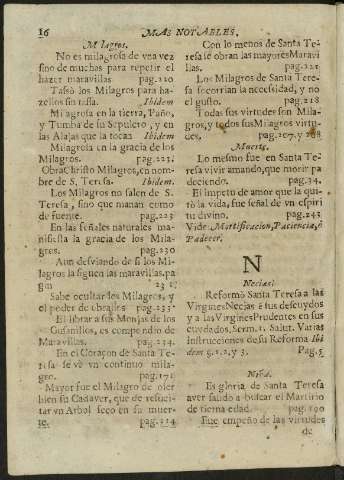 16 MAS NOTABLES.
Milagros.
No es milagrosa de vna vez
sino de muchas para repetir el
hazer maravillas pag.120
Tassò los Milagros para ha-
zellos sin tassa. Ibidem
Milagrosa en la tierra, Paño,
y Tumba de su Sepulcro, y en
las Alajas que la tocan Ibidem
Milagrosa en la gracia de los
Milagros. pag.223.
Obra Christo Milagros, en nom-
bre de S. Teresa. Ibidem.
Los Milagros no salen de S.
Teresa, sino que manan como
de fuente. pag.223
En las señales naturales ma-
nifiesta la gracia de los Mila-
gros. pag.230
Aun desviando de si los Mi-
lagros la siguen las maravillas. pa
gin 231
Sabe ocultar los Milagros, y
el poder de obrallos pag.233
El librar a sus Monjas de los
Gusanillos, es compendio de
Maravillas. pag.234.
En el Coraçon de Santa Te-
resa se vè vn continuo mila-
gro. pag.171
Mayor fue el Milagro de oler
bien su Cadaver, que de resuci-
tar vn Arbol seco en su muer-
te. pag.214
Con lo menos de Santa Te-
resa se obran las mayores Maravi
llas. pag.221
Los Milagros de Santa Tere-
sa socorrian la necessidad, y no
el gusto. pag.218
Todas sus virtudes son Mila-
gros, y todos sus Milagros virtu-
des. pag.207. y 208
Muerte.
Lo mesmo fue en Santa Te-
resa vivir amando, que morir pa
deciendo. pag.34.
El impetu de amor que la qui-
tò la vida, fue señal de vn espiri
tu divino. pag.243
Vide Mortificacion, Paciencia, ò
Padecer.
N
Necias.
Reformò Santa Teresa a las
Virgines Necias è sus descuydos
y a las Virgines Prudentes en sus
cuydados, Serm.1. Salut. Varias
instrucciones de su Reforma Ibi
dem §.1.2. y 3. Pag.5
Niña.
Es gloria de Santa Teresa
aver salido a buscar el Martirio
de tierna edad. pag.190
Fue empeño de las virtudes
de